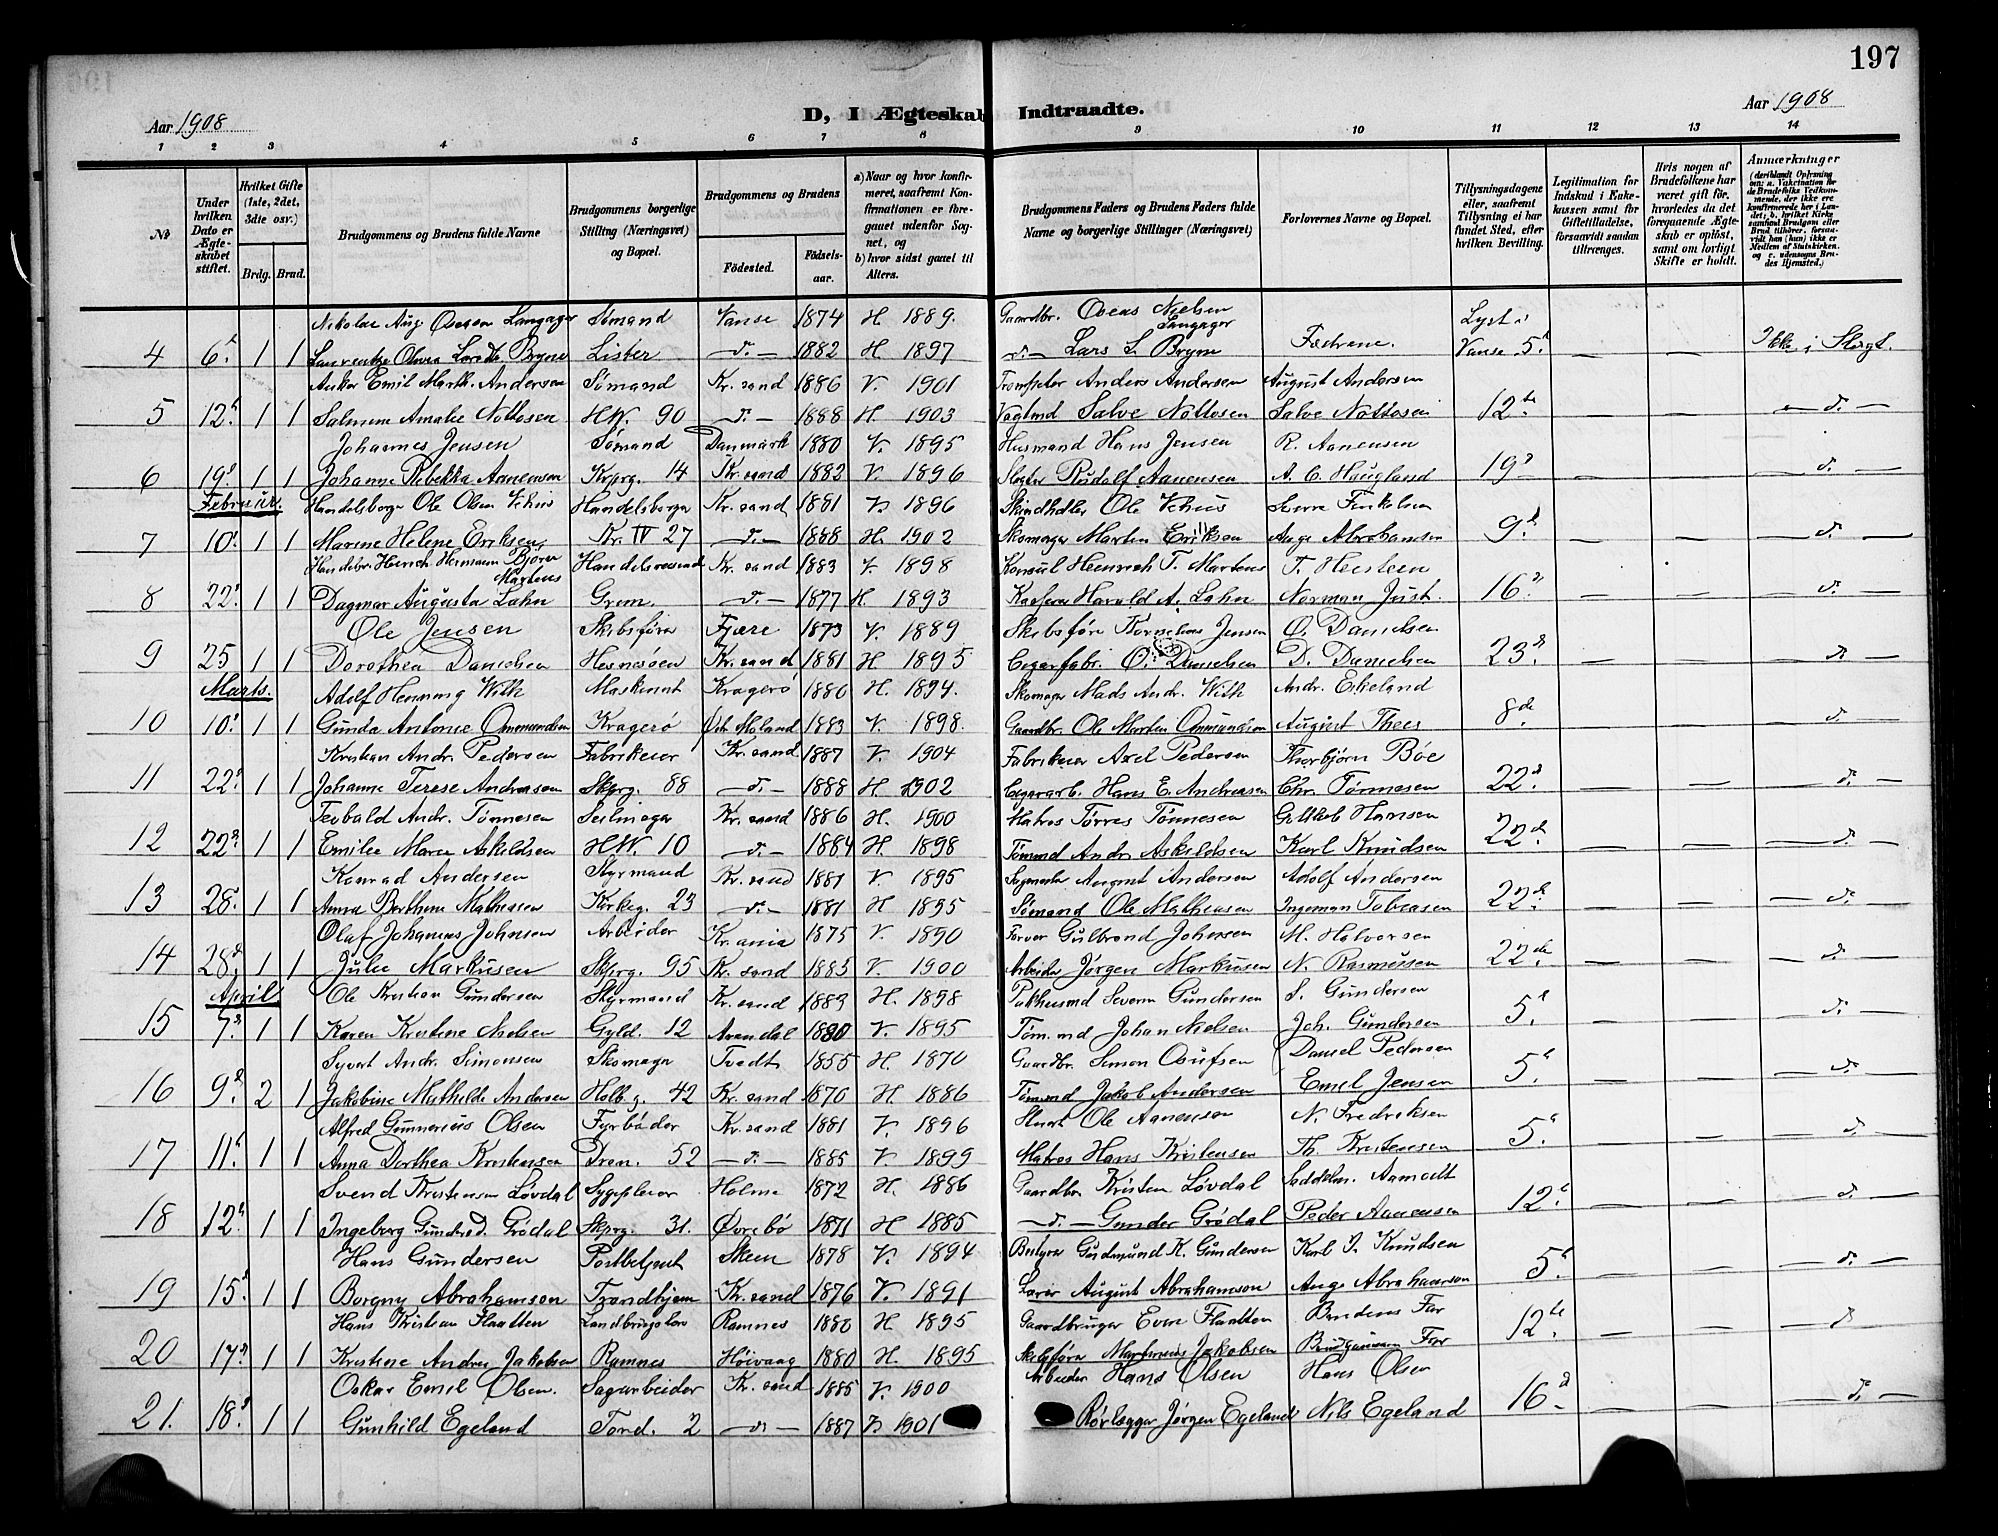 197
Aar 1908
D, I Ægteskab Indtraadte.
Aar 1908
1 2 3 4 5 6 7 8 9 10 11 12 13 14
№
Under hvilken Dato er Ægteskabet stiftet.
Hvilket Gifte (1ste, 2det, 3die osv.)
Brdg. Brud.
Brudgommens og Brudens fulde Navne
Brudgommens borgerlige Stilling (Næringsvei) og Bopæl.
Brudgommens og Brudens
Fødested.
Fødselsaar.
a) Naar og hvor konfirmeret, saafremt Konfirmationen er foregaaet udenfor Sognet, og
b) hvor sidst gaaet til Alters.
Brudgommens Faders og Brudens Faders fulde Navne og borgerlige Stillinger (Næringsvei)
Forlovernes Navne og Bopæl.
Tillysningsdagene eller, saafremt Tillysning ei har fundet Sted, efter hvilken Bevilling.
Legitimation for Indskud i Enkekassen samt for Giftetilladelse, forsaavidt saadan tiltrænges.
Hvis nogen af Brudefolkene har været gift før, hvorledes da det foregaaende Ægteskab er opløst, samt om lovligt Skifte er holdt.
Anmærkninger (deriblandt Oplysning om: a. Vakcination for de Brudefolks Vedkommende, der ikke ere konfirmerede her i Landet, b. hvilket Kirkesamfund Brudgom eller Brud tilhører, forsaavidt han (hun) ikke er Medlem af Statskirken, og c. udensogns Brudes Hjemsted.)
Nikolai Aug Langager Sømand Vanse 1874 H. 1889. Gaardbr. Nielsen Langager Lyst i
4 6. 1 1 Olivia Bryne Lister d. 1882 H. 1897 d. Lars L. Bryne Fædrene. Vanse 5. — — Ikke i Slegt.
Anker Emil Marth. Andersen Sømand Kr. sand 1886 V. 1901 Anders Andersen August Andersen
5 12 1 1 Amalie Nottosen H.W. 90 d. 1888 H. 1903 Salve Nottosen Salve Nottosen 12te — — d.
Johannes Jensen Sømand Danmark 1880 V. 1895 Husmand Hans Jensen R. Aanensen
6 19. 1 1 Johanne Rebekka Aanensen Kprg. 14 Kr. sand 1883 V. 1896 Rudolf Aanensen A. C. Haugland 19 — — d.
Februar. Handelsborge Ole Olsen Vehus Handelsborger Kr. sand 1881 1896 Ole Vehus
7 10. 1 1 Marine Helene Eriksen Kr. IV 27 d. 1888 H. 1902 Skomager Martin Erikson Aage Abrahamsen 9. — — d.
Hinrich Hermann Bjørn Martens Kr. sand 1883 V. 1898 Konsul Heinrich T. Martens T. Heesteen
8 22. 1 1 Dagmar Augusta Lahn Grem. d. 1877 H. 1893 Harald A. Lahn Norman Just. 16. — — d.
Ole Jensen Skibsføre Fjære 1873 V. 1889 Skibsføre Kornelius Jensen O. Danielsen
9 25 1 1 Dorothea Danielsen Hesnesøen Kr. sand 1881 H. 1895 Cigarfabr. O. Danielsen D. Danielsen 23. — — d.
Marts. Adolf Henning With Maskinist Kragerø 1880 H. 1894. Skomager Mads Andr. With Andr. Eikeland
10 10. 1 1 Gunda Antonie Ommundsen Kragerø Moland 1883 V. 1898. Gaardbr. Ole Martin Ommundsen August Thees 8de — — d.
Kristian Andr. Pedersen Fabrikeier Kr. sand 1887 V. 1904 Fabrikeier Axel Pedersen Thorbjørn Bøe
11 22. 1 1 Johanne Terese Andreasen Skprg. 88 d. 1888 H. 1902 Cigararb. Hans E. Andreasen Chr. Tønnesen 22. — — d.
Teobald Andr. Tønnesen Seilmager Kr. sand 1886 H. 1900 Matros Tørres Tønnesen Hansen
12 22. 1 1 Emilie Marie Askildsen H.W. 10 d. 1884 H. 1898 Tømmd Andr. Askildsen Karl Knudsen 22. — — d.
Konrad Andersen Styrmand Kr. sand 1881 V. 1895 August Andersen Adolf Andersen
13 28. 1 1 Anna Berthine Mathiesen Kirkeg. 23 d. 1881 H. 1895 Sømand Ole Mathiesen Ingeman Tobiasen 22. — — d.
Olaf Johannes Johnsen Arbeider Kr. ania 1875 V. 1890 Farver Gulbrand Johnsen M. Halvorsen
14 28. 1 1 Julie Markusen Skprg. 95 Kr. sand 1883 V. 1900 Arbeider Jørgen Markusen N. Rasmussen 22de — — d.
April Ole Kristian Gundersen Styrmand Kr. sand 1883 H. 1898 Pakhusmd Severin Gundersen S. Gundersen
15 7. 1 1 Karen Kristine Nielsen Gyld. 12 Arendal 1880 V. 1895 Tøm. md Johan Nielsen Joh. Gundersen 5. — — d.
Syvert Andr. Simonsen Skomager Tvedt 1855 H. 1870 Gaardbr. Simon Daniel Pedersen
16 9. 2 1 Jakobine Mathilde Andersen Holb. g. 42 Kr. sand 1870 H. 1886 Tømmd Jakob Andersen Emil Jensen 5. — — d.
Alfred Gunnerius Olsen Fyrbøder Kr. sand 1881 V. 1896 Ole Aanensen N. Fredriksen
17 11. 1 1 Anna Dorthea Kristensen Dron. 52 d. 1885 V. 1899 Matros Hans Kristensen Th. Kristensen 5. — — d.
Svend Kristensen Løvdal Sygepleier Holme 1872 H. 1886 Gaardbr Kristen Løvdal Saddelm. Aamodt
18 12. 1 1 Ingeborg Gundersd. Grødal Skprg. 31. Øvrebø 1871 H. 1885 d. Gunder Grødal Peder Aanensen 12. — — d.
Hans Gundersen Postbetjent Skien 1878 V. 1894 Bestyrer Gudmund K. Gundersen Karl Knudsen
19 15. 1 1 Borgny Abrahamson Trondhjem Kr. sand 1876 V. 1891 Lærer August Abrahamson Aage Abrahamson 5. — — d.
Hans Kristian Flaatten Landbrugslærer Ramnes 1880 H. 1895 Gaardbruger Even Flaatten Brudens Far
20 17. 1 1 Kristine Andrea Jakobsen Ramnes Høivaag 1880 H. 1895 Skibsføre Martinius Jakobsen Brudgommens Far 12te — — d.
Oskar Emil Olsen. Sagarbeider Kr. sand 1885 V. 1900 Arbeider Hans Olsen Hans Olsen
21. 18. 1 1 Gunhild Egeland Tord. 2 d. 1887 1901 Rørlegger Jørgen Egeland Nils Egeland 16. — — d.